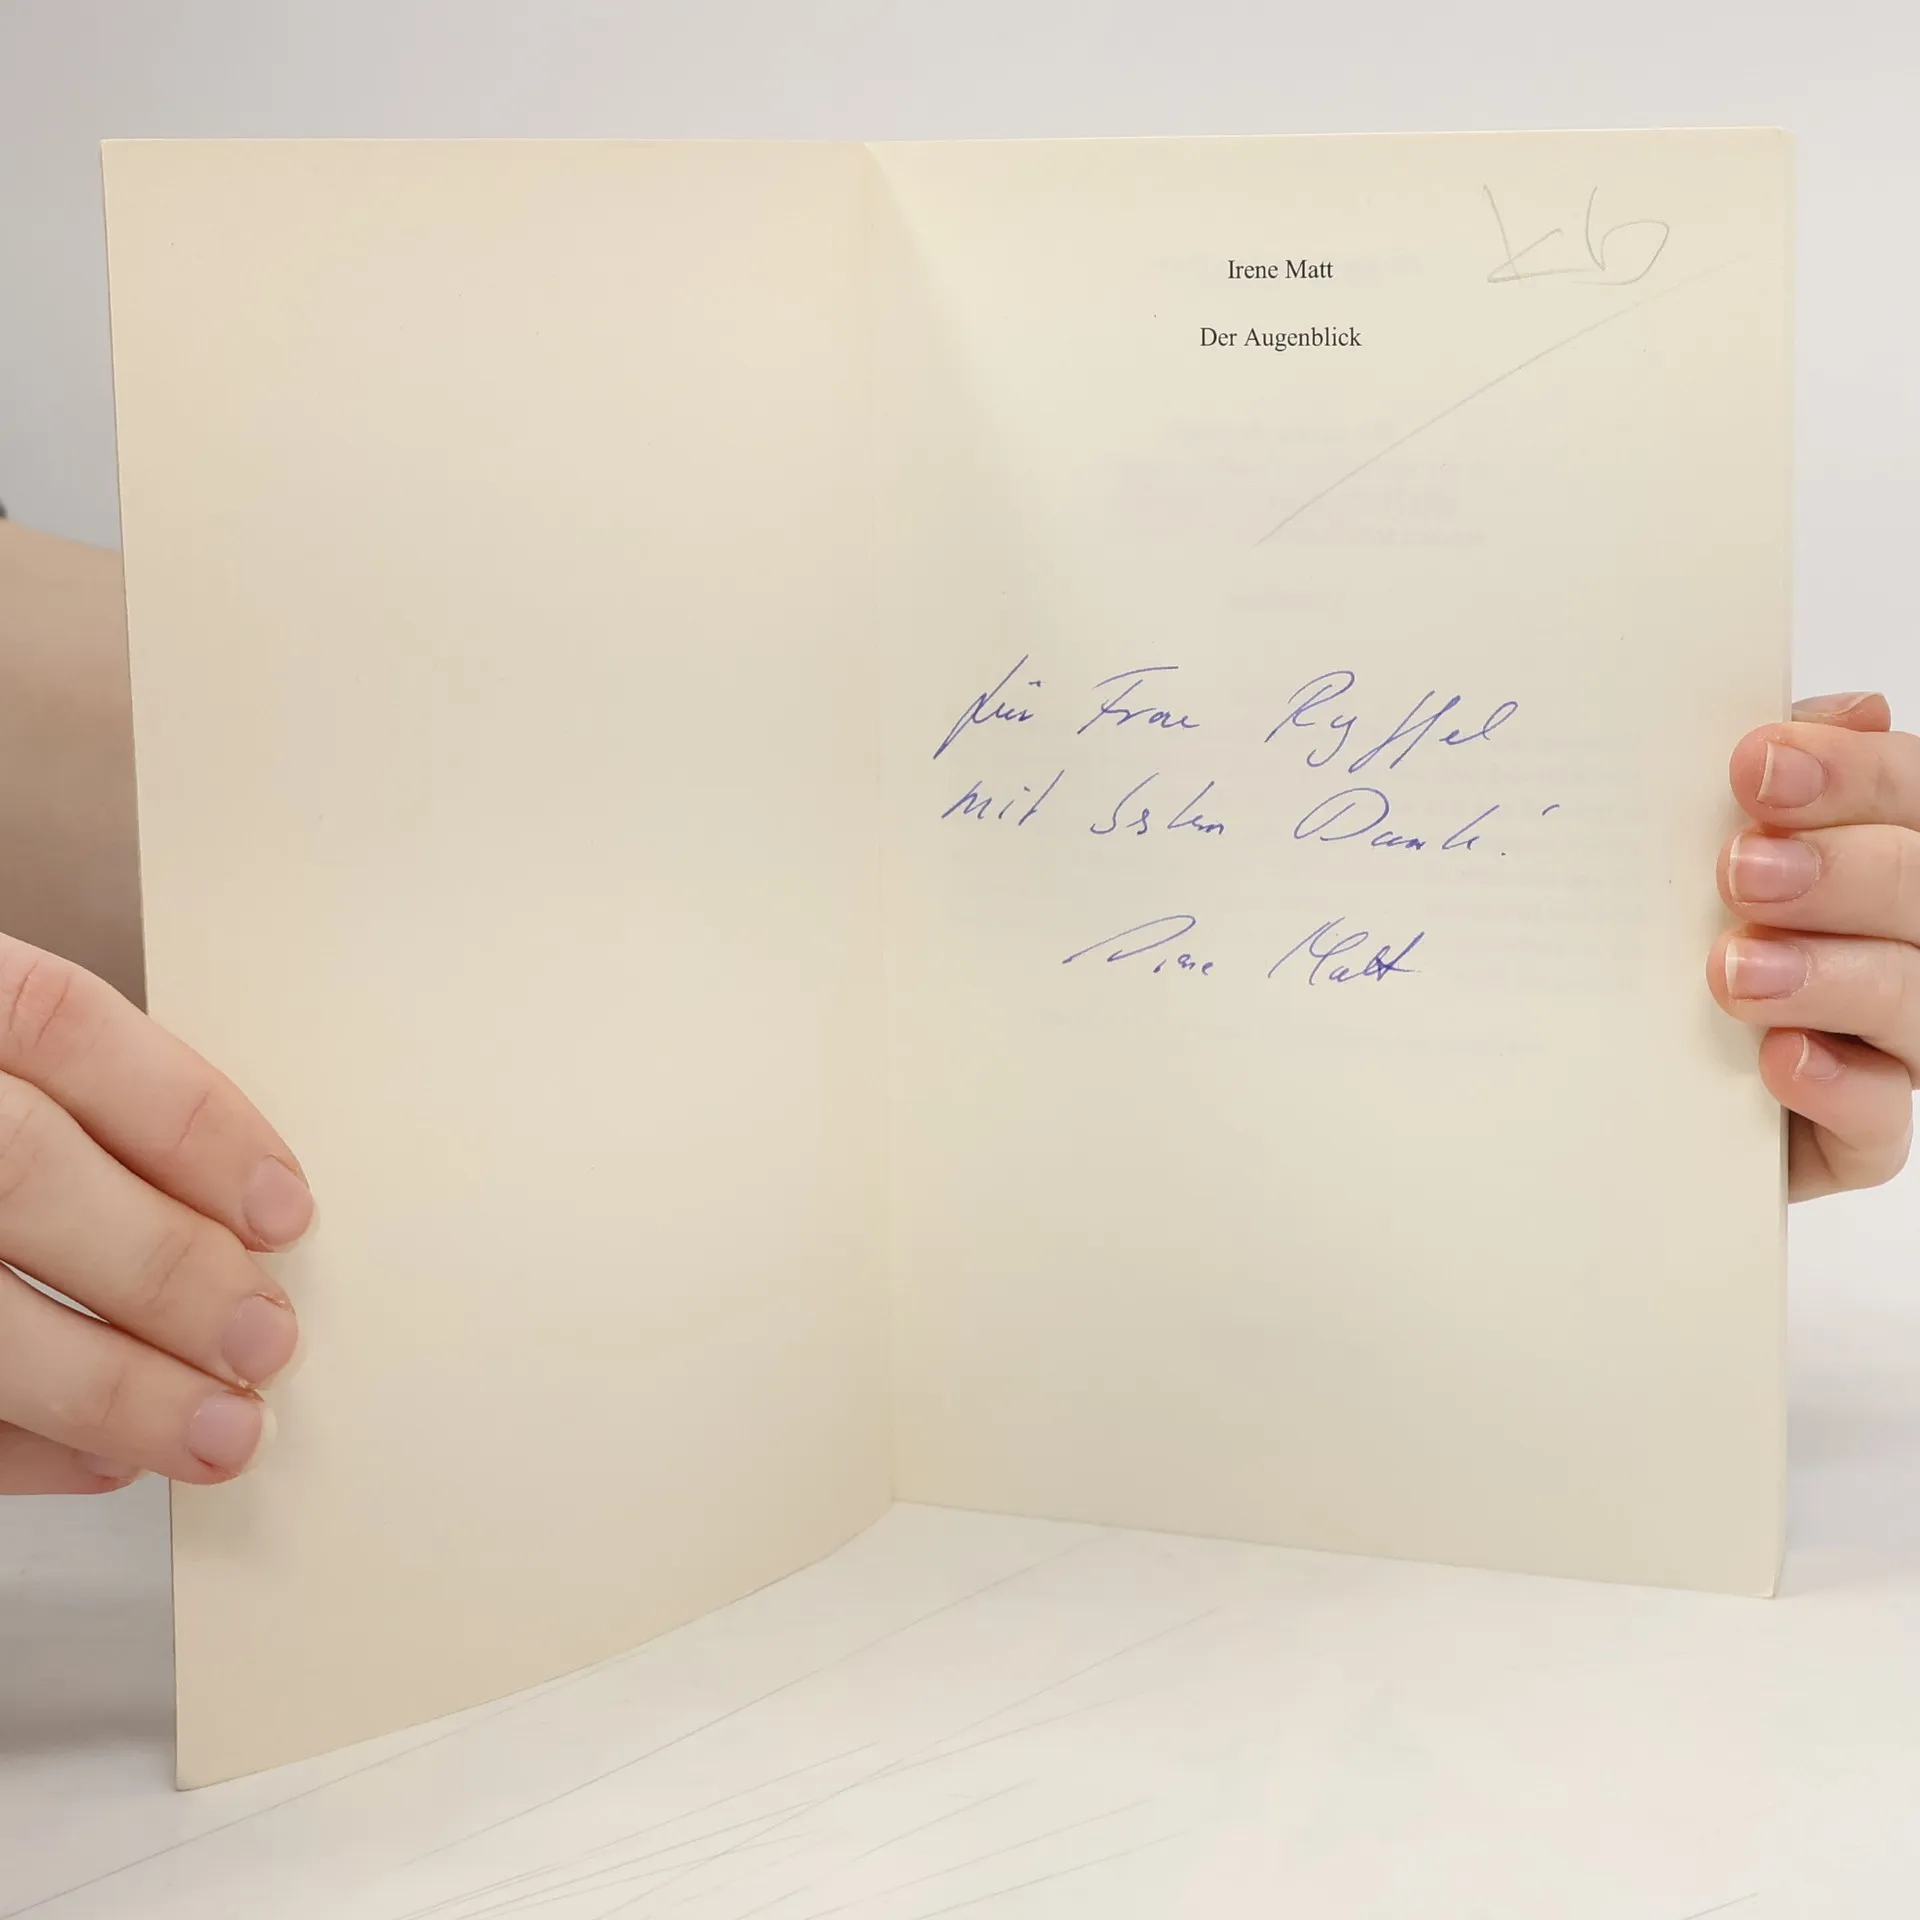 Irene Matt
Der Augenblick
für Frau Ryffel
mit bestem Dank!
Irene Matt